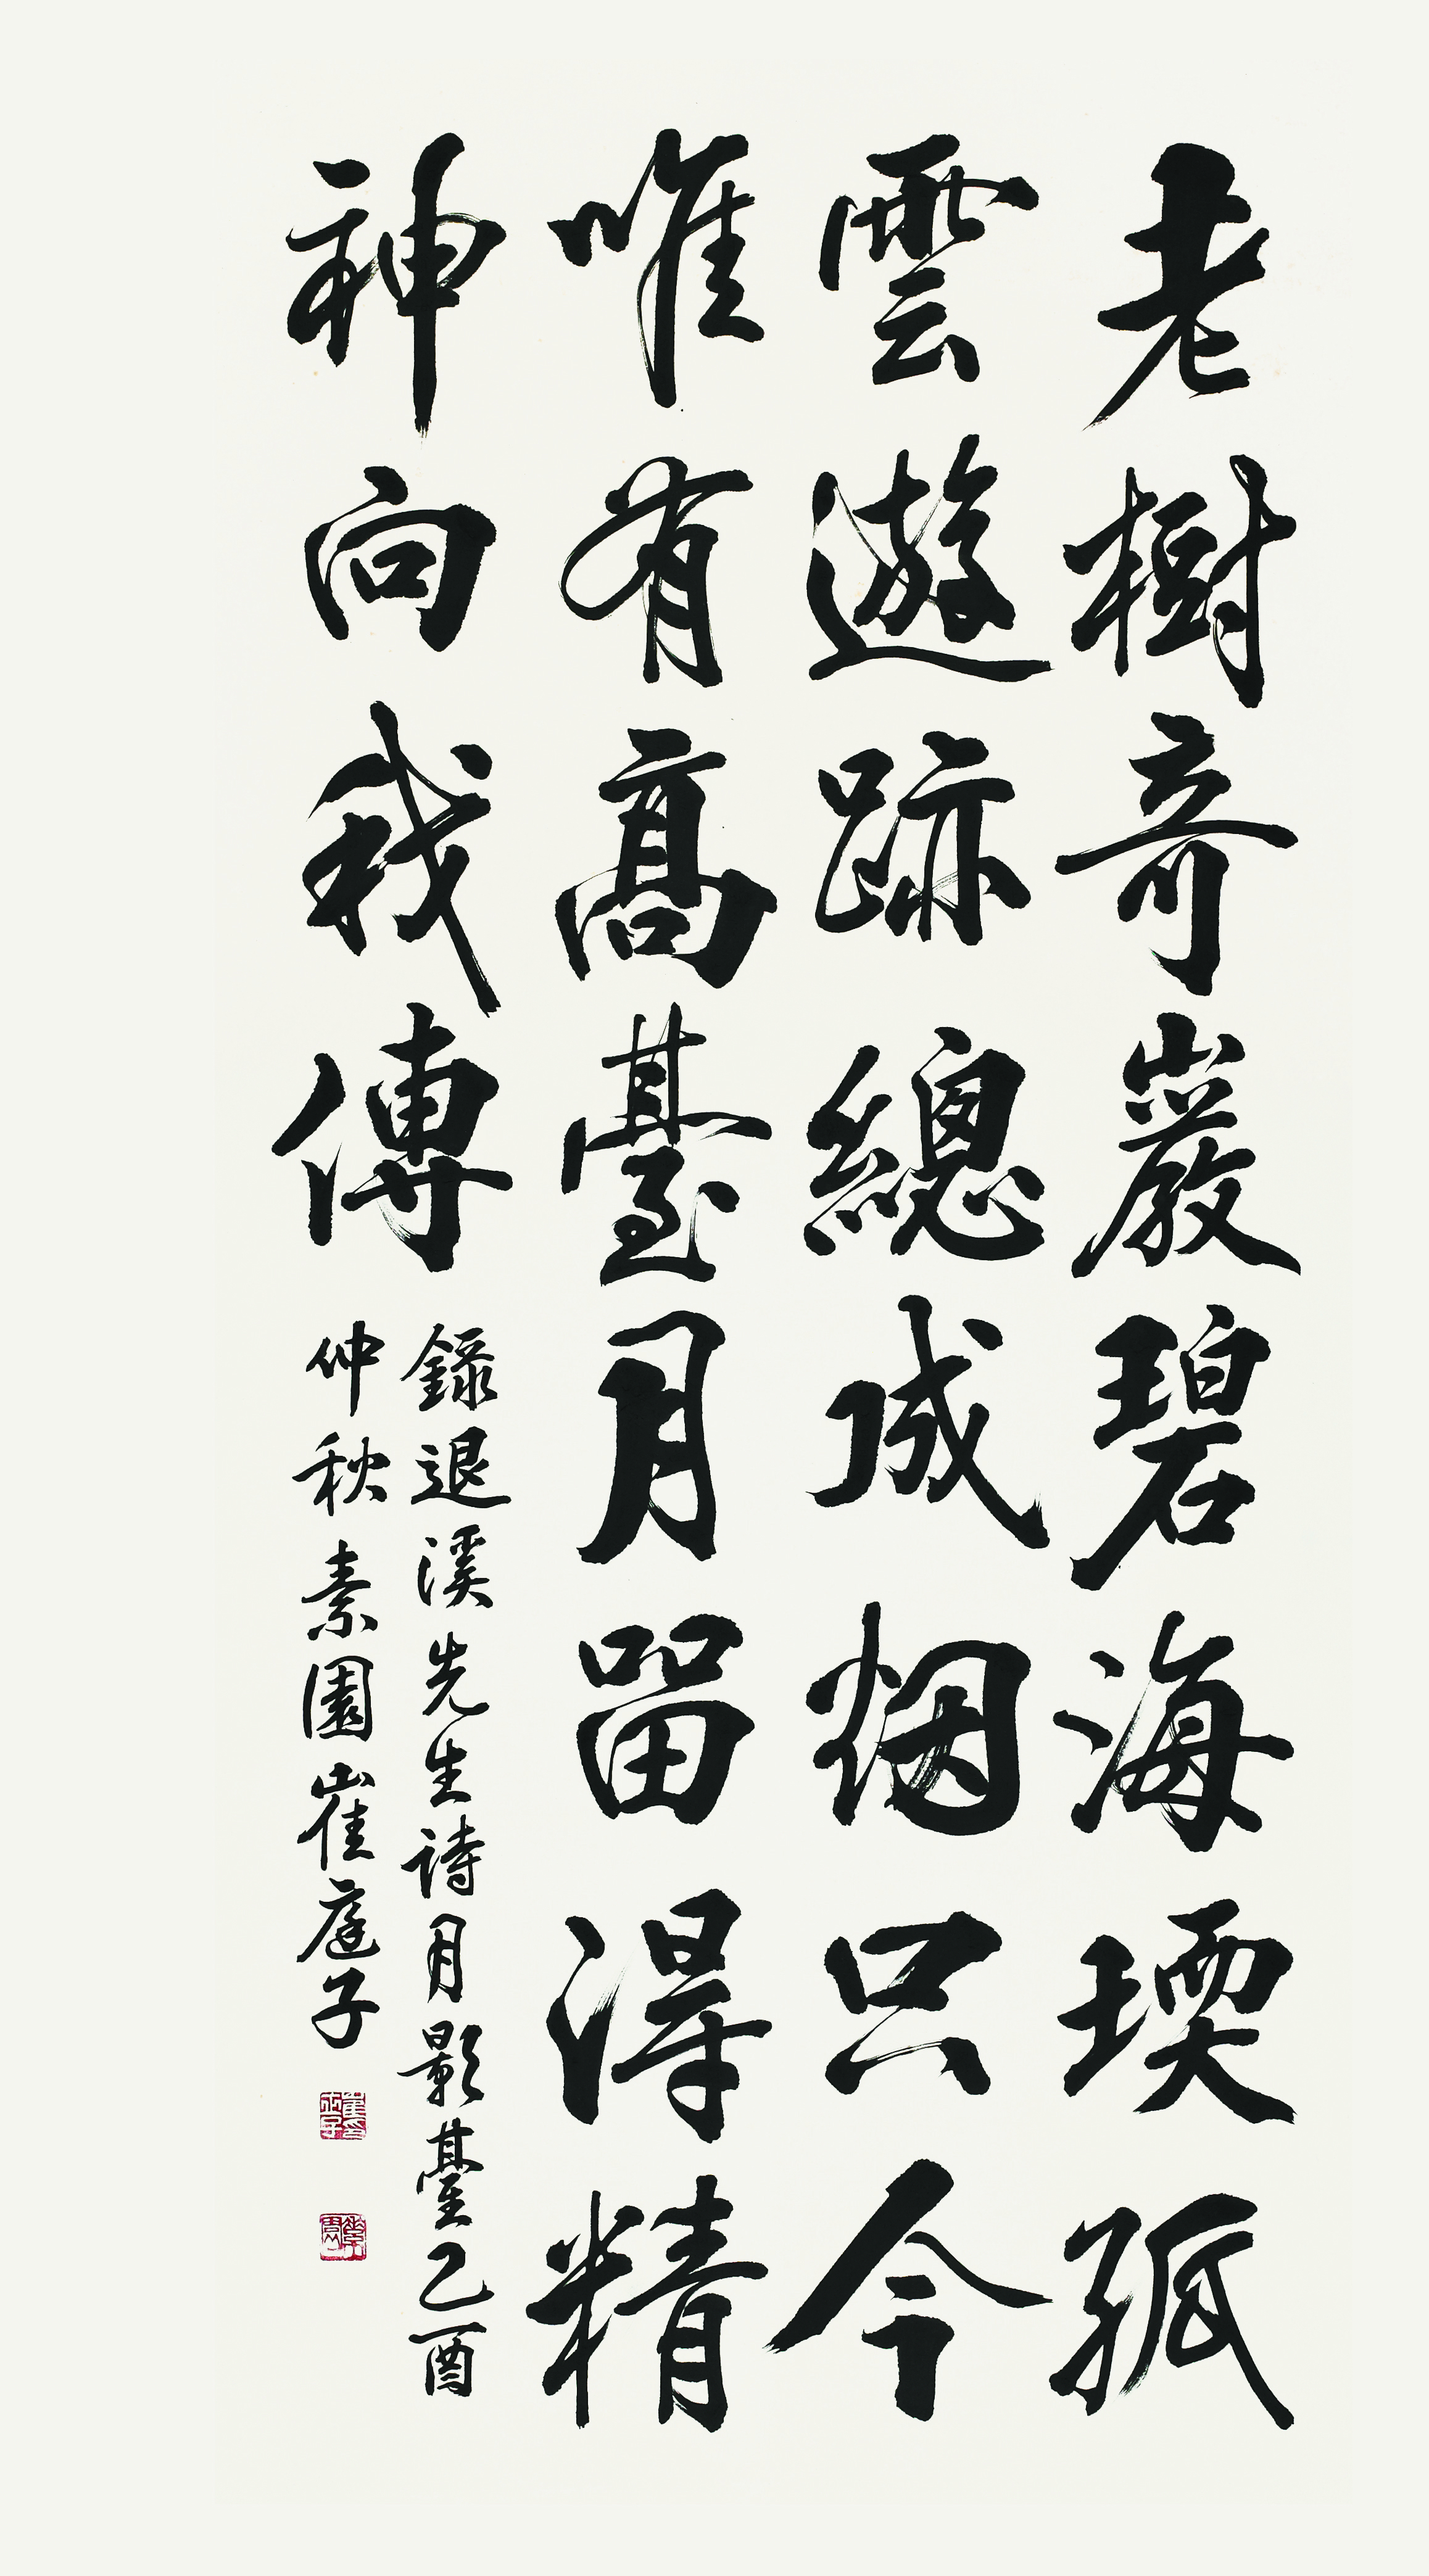 老樹奇巖碧海堧孤
雲遊跡總成烟只今
唯有高臺月留得精
神向我傳
錄退溪先生詩月影臺乙酉
仲秋素園崔庭子
素園